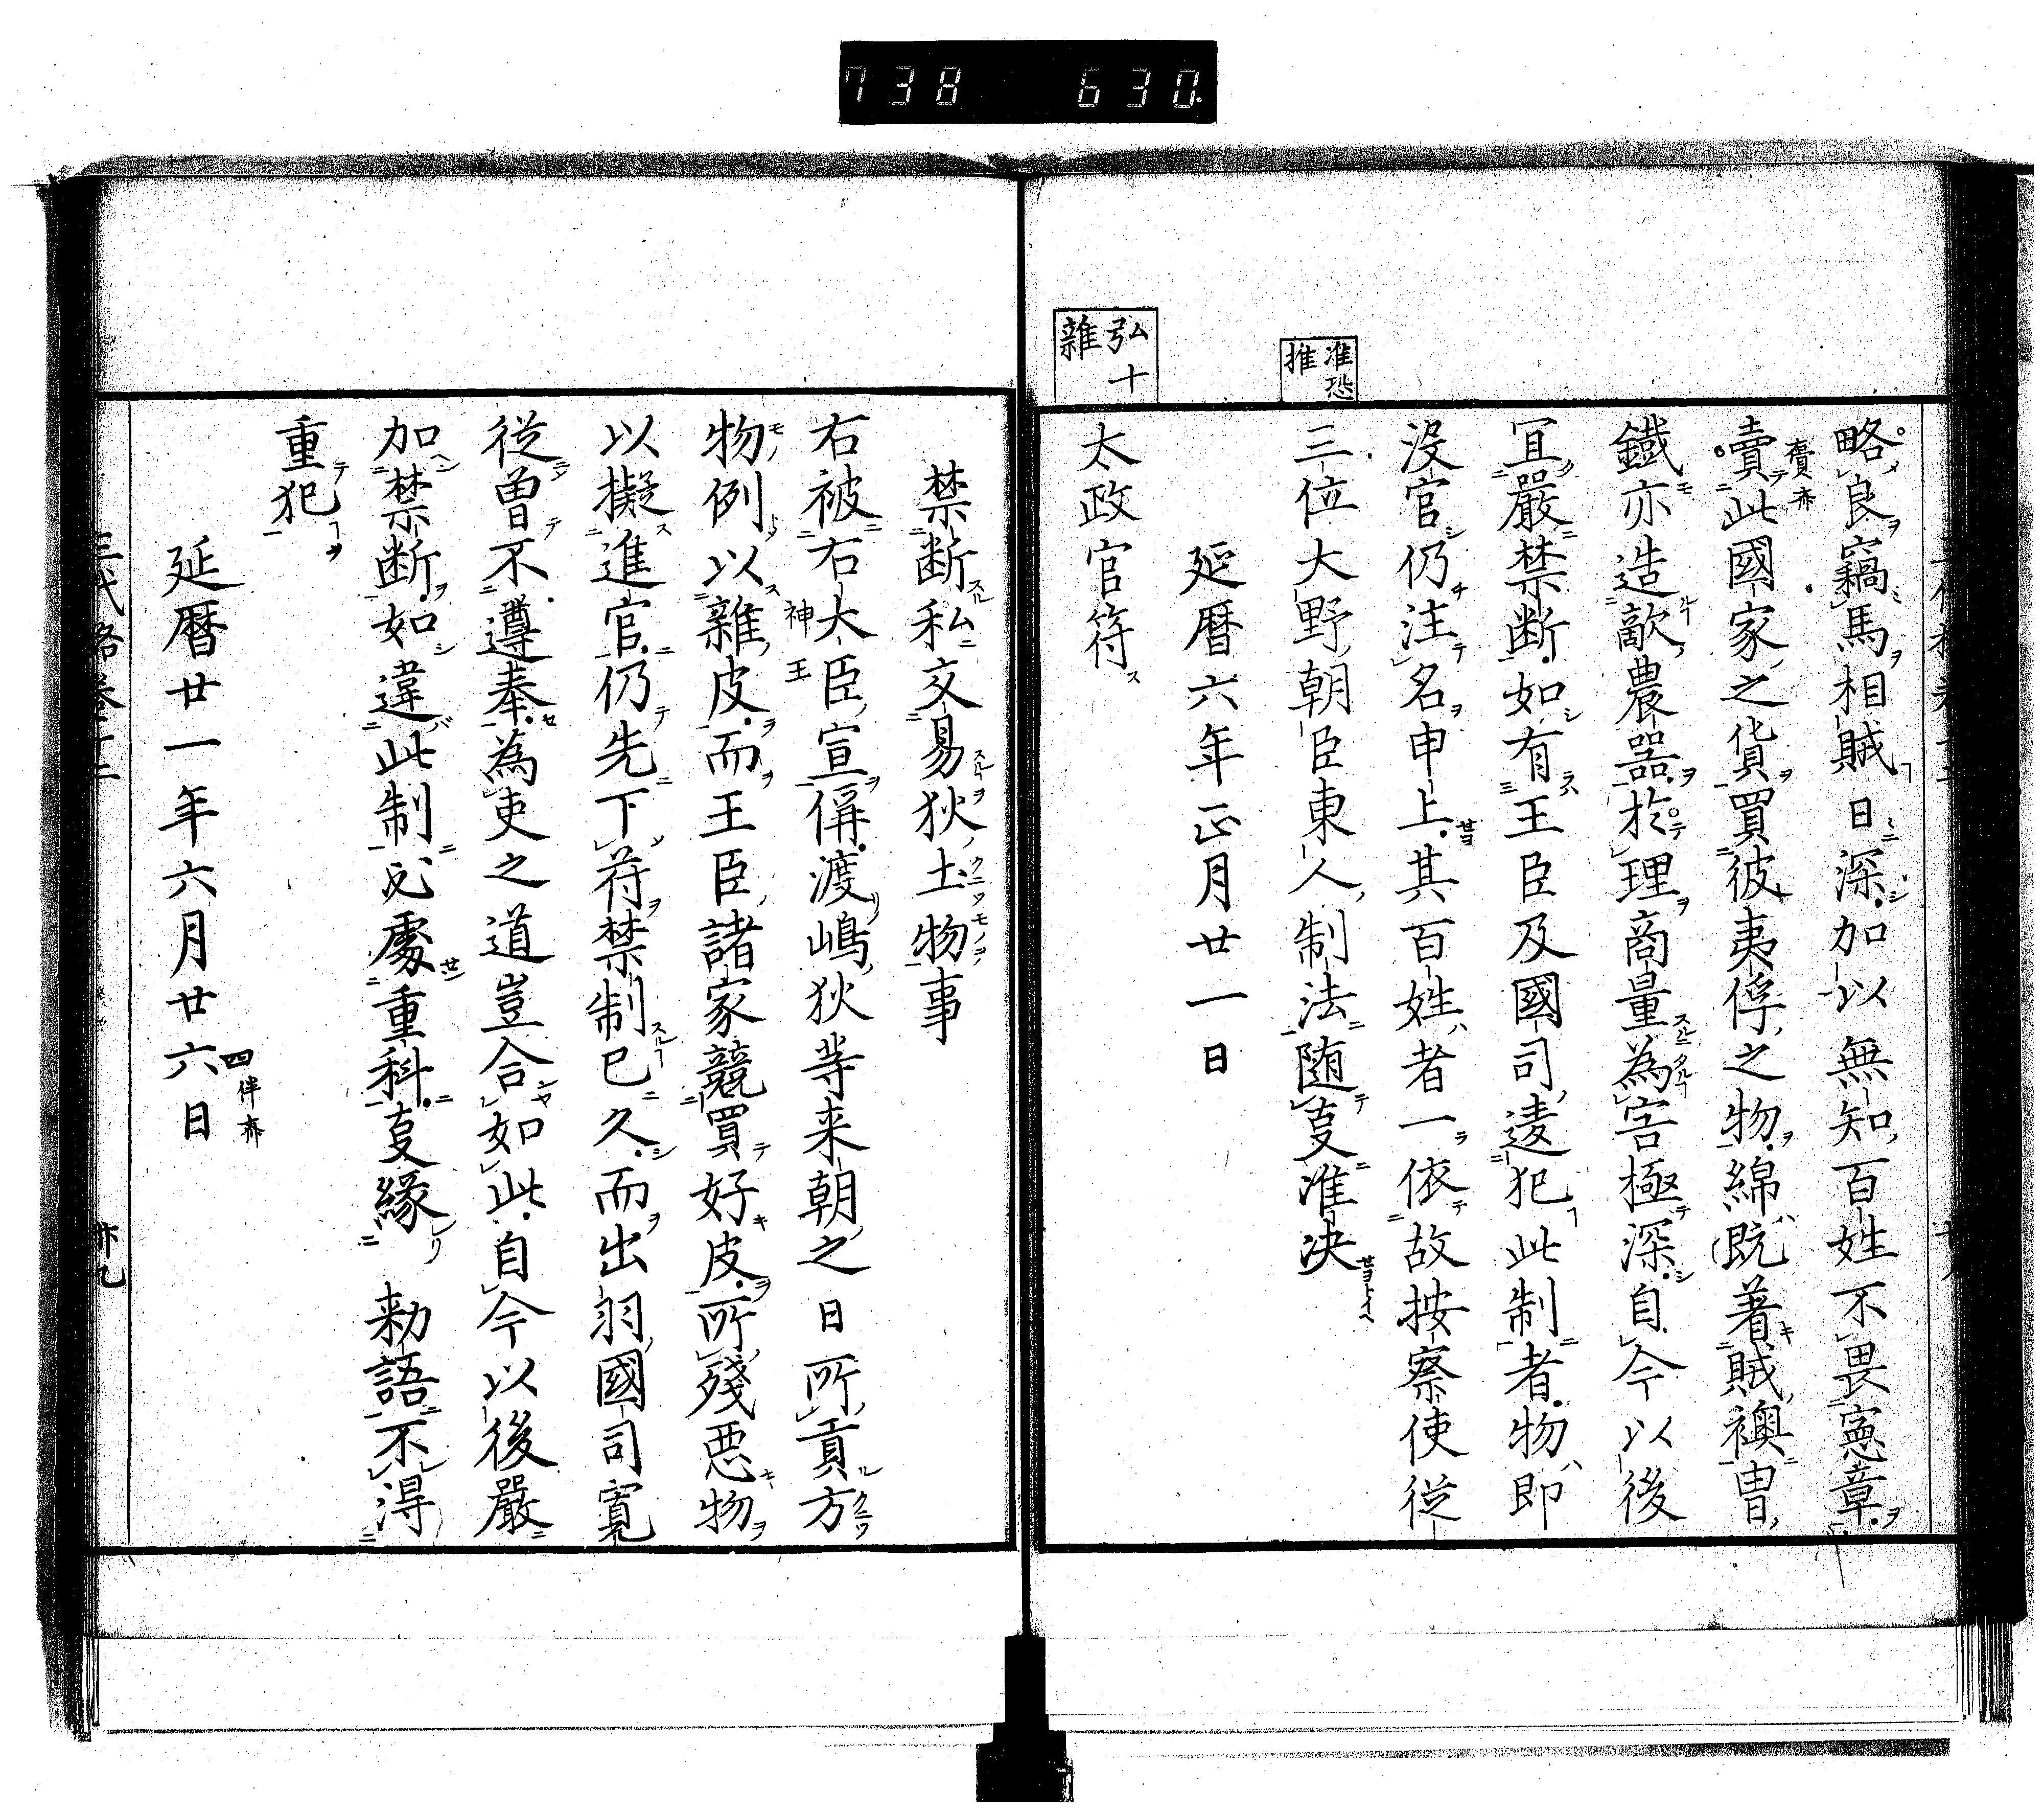 738 630
略良竊馬相賊日深加以無知百姓不畏憲章
賣此國家之貨買彼夷俘之物綿既着賊襖冑
鐵亦造敵農器於理商量為害極深自今以後
冝嚴禁断如有王臣及國司違犯此制者物即
没官仍注名申上其百姓者一依故按察使従
三位大野朝臣東人制法随叓准决
延暦六年正月廿一日
太政官符
准恐
推
弘十
雜
禁断私交易狄土物事
右被右大臣宣偁渡嶋狄等来朝之日所貢方
神王
物例以雜皮而王臣諸家競買好皮所殘悪物
以擬進官仍先下符禁制已久而出羽國司寛
従曽不遵奉為吏之道豈合如此自今以後嚴
加禁断如違此制必處重科叓縁 勅語不得
重犯
延暦廿一年六月廿六日
四
三代格巻十九